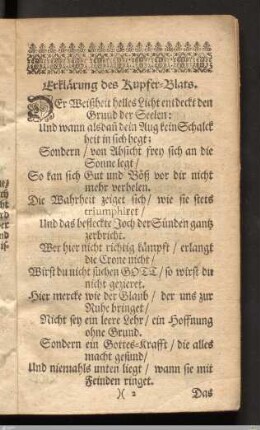 Erklärung des Kupfer-Blats.
DEr Weißheit helles Licht entdeckt den
Grund der Seelen:
Und wann alsdañ dein Aug kein Schalck
heit in sich hegt;
Sondern / von Absicht frey sich an die
Sonne legt /
So kan sich Gut und Böß vor dir nicht
mehr verhelen.
Die Wahrheit zeiget sich / wie sie stets
triumphiret /
Und das befleckte Joch der Sünden gantz
zerbricht.
Wer hier nicht richtig kämpft / erlangt
die Crone nicht /
Wirst du nicht suchen GOTT / so wirst du
nicht gezieret.
Hier mercke wie der Glaub / der uns zur
Ruhe bringet /
Nicht sey ein leere Lehr / ein Hoffnung
ohne Grund.
Sondern ein Gottes-Krafft / die alles
macht gesund /
Und niemahls unten liegt / wann sie mit
Feinden ringet.
)( 2 Das